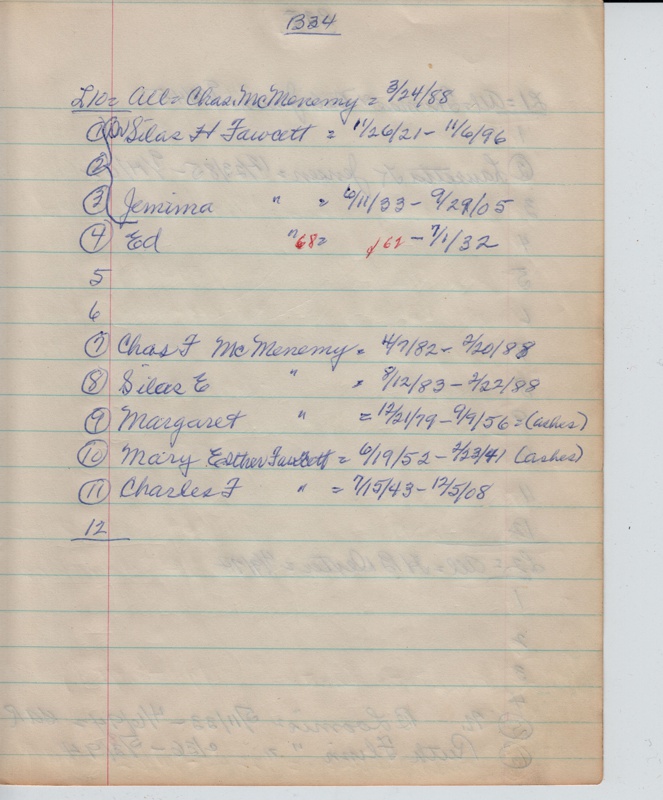 B34
L10 = All = Chas. McMenemy = 3/24/88
1 Silas H Fawcett = 11/26/21 - 11/6/96
2
3 Jemima " = 6/11/33 - 9/29/05
4 Ed " 68 = 62 - 7/1/32
5
6
7 Chas F McMenemy = 4/7/82 - 2/20/88
8 Silas E " = 8/12/83 - 2/22/88
9 Margaret " = 12/21/79 - 9/9/56 = (ashes)
10 Mary Esther Fawcett = 6/19/52 - 2/23/41 (ashes)
11 Charles F " = 7/15/43 - 12/5/08
12